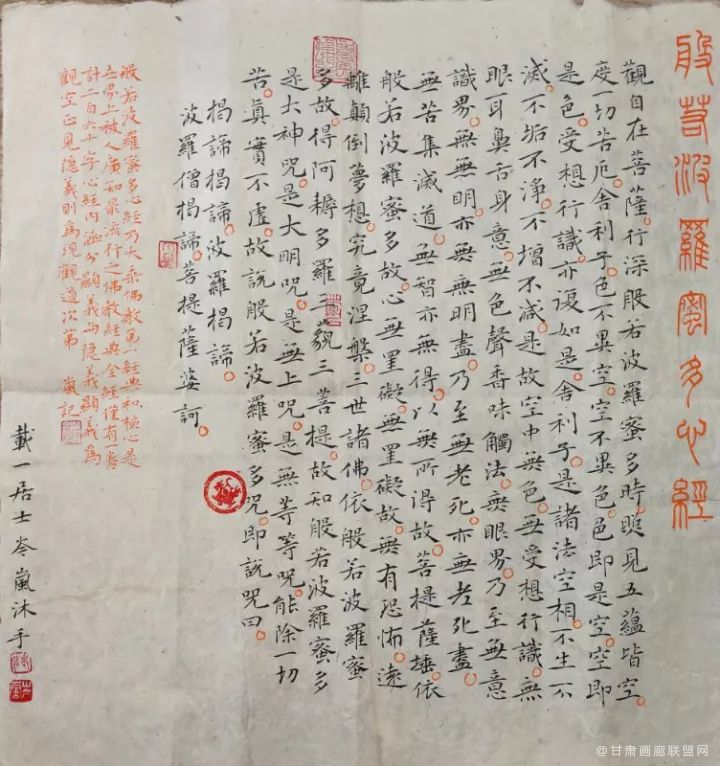 般若波羅蜜多心經
觀自在菩薩。行深般若波羅蜜多時。照見五蘊皆空。
度一切苦厄。舍利子。色不異空。空不異色。色即是空。空即
是色。受想行識。亦復如是。舍利子。是諸法空相。不生不
滅。不垢不淨。不增不減。是故空中無色。無受想行識。無
眼耳鼻舌身意。無色聲香味觸法。無眼界。乃至無意
識界。無無明。亦無無明盡。乃至無老死。亦無老死盡。
無苦集滅道。無智亦無得。以無所得故。菩提薩埵。依
般若波羅蜜多故。心無罣礙。無罣礙故。無有恐怖。遠
離顛倒夢想。究竟涅槃。三世諸佛。依般若波羅蜜
多故。得阿耨多羅三藐三菩提。故知般若波羅蜜多
是大神咒。是大明咒。是無上咒。是無等等咒。能除一切
苦。真實不虛。故說般若波羅蜜多咒。即說咒曰。
揭諦揭諦。波羅揭諦。
波羅僧揭諦。菩提薩婆訶。
般若波羅蜜多心經乃大乘佛教第一經典和核心是
世界上被人廣知最流行之佛教經典全經僅有
計二百六十字心經內涵分顯義與隱義顯義為
觀空正見隱義則為現觀道次第 嵐記
載一居士岑嵐沐手
@甘肃画廊联盟网